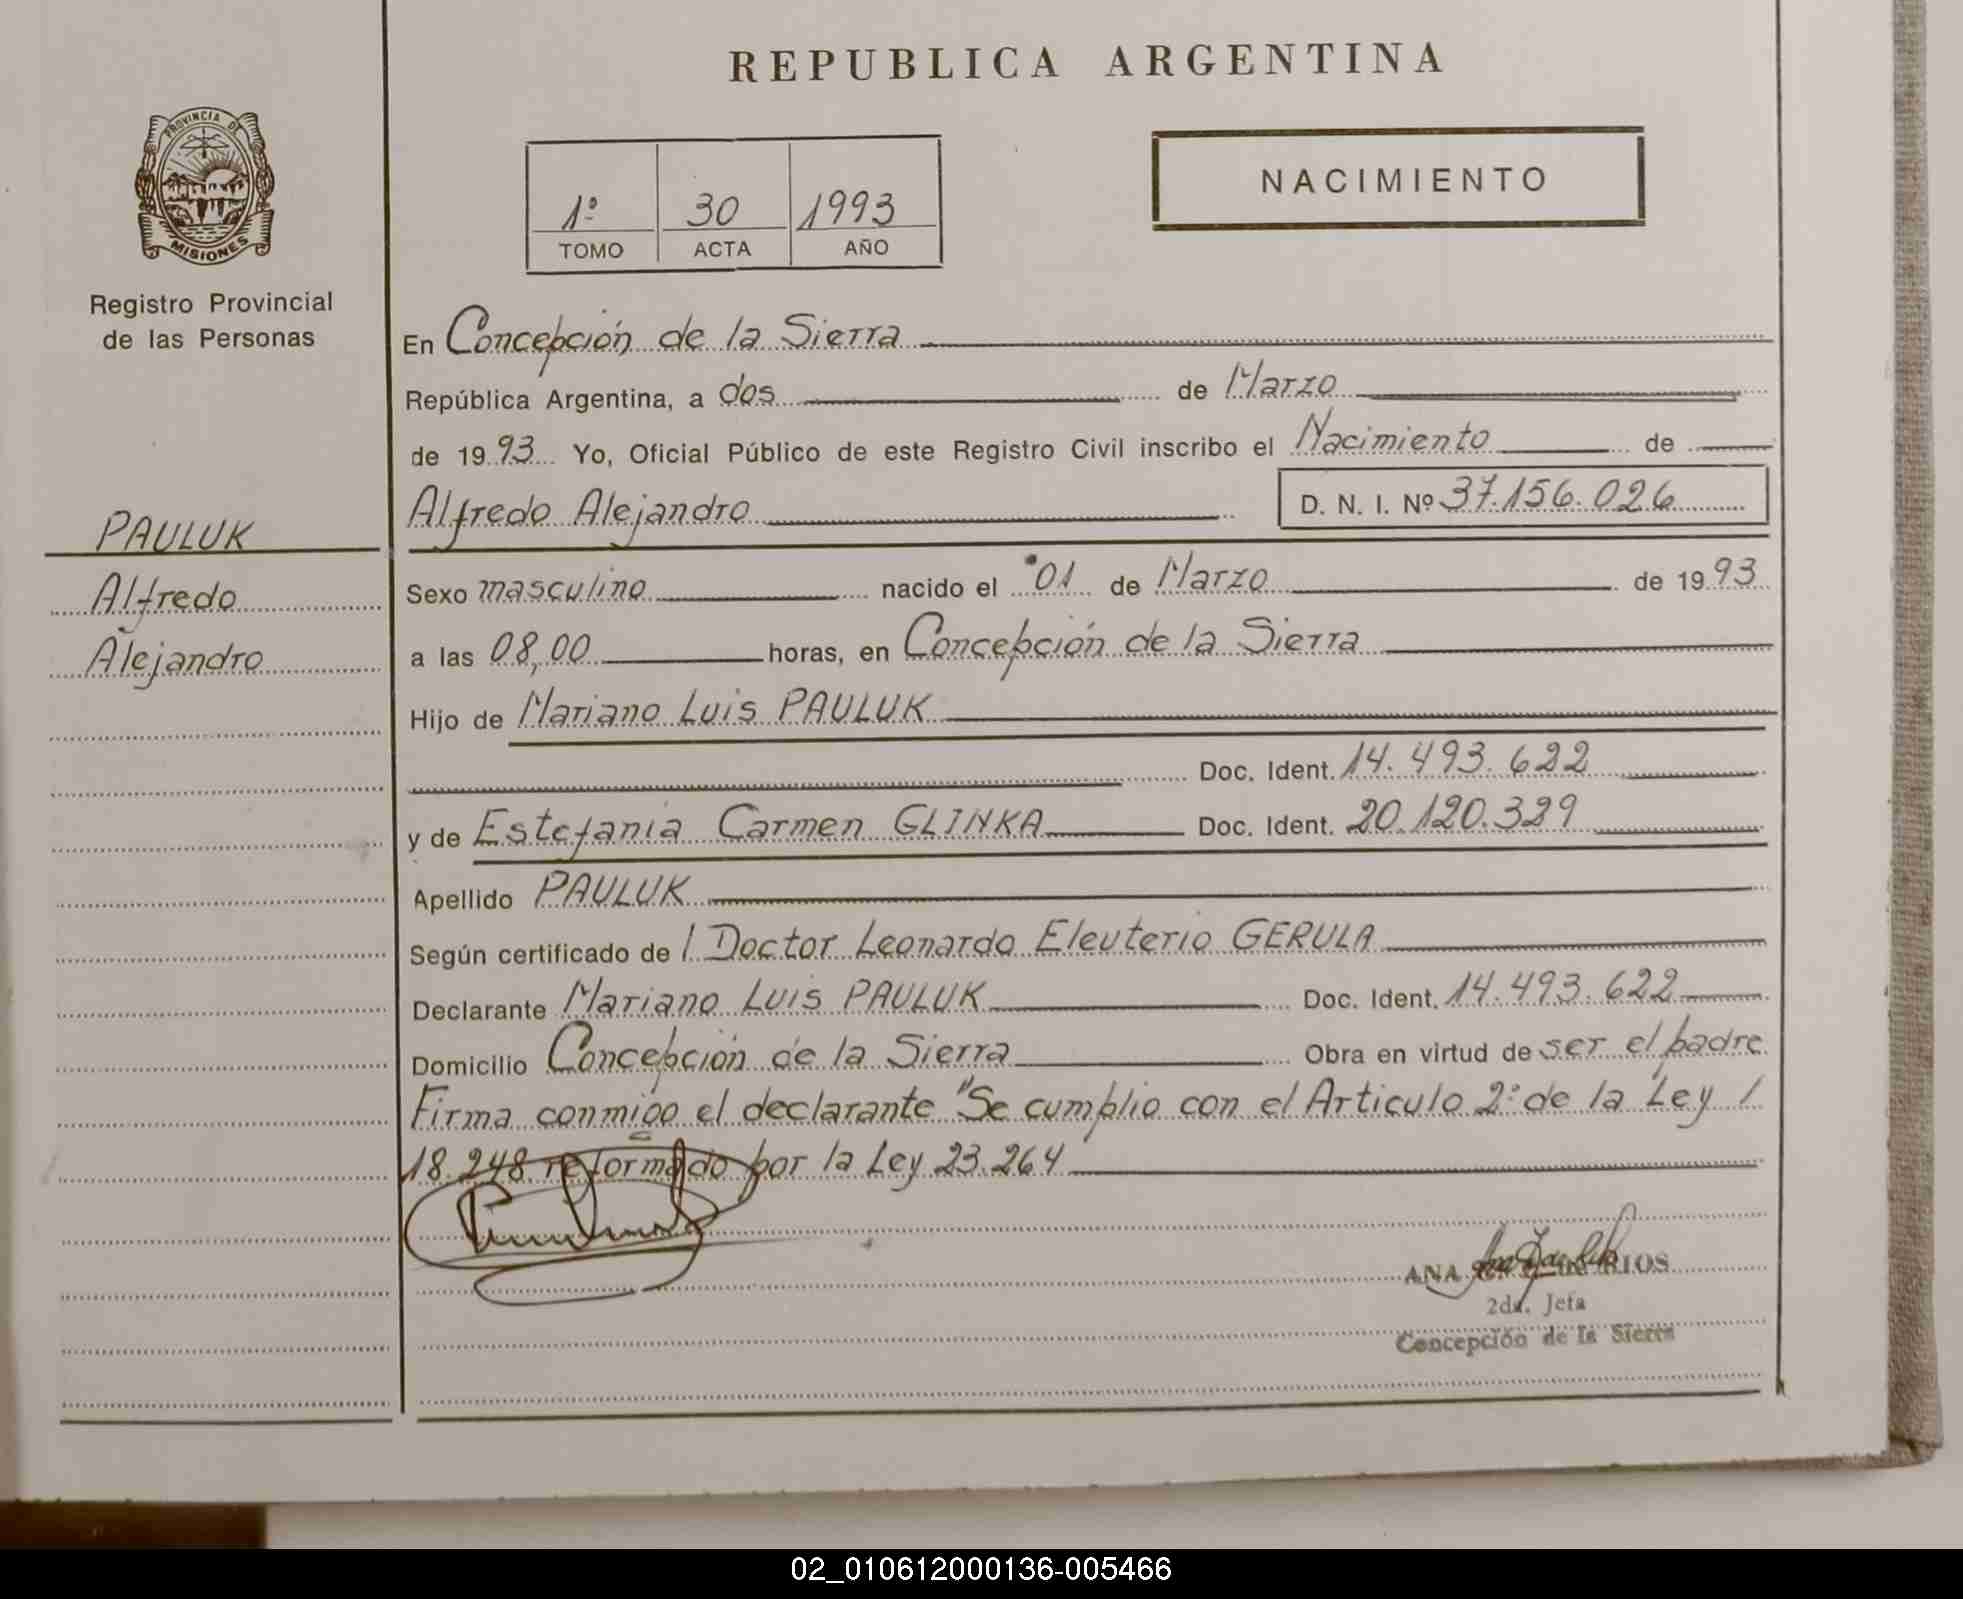 REPUBLICA ARGENTINA
PROVINCIA DE
MISIONES
Registro Provincial
de las Personas
1º 30 1993
TOMO ACTA AÑO
NACIMIENTO
En Concepción de la Sierra
República Argentina, a dos de Marzo
de 1993 Yo, Oficial Público de este Registro Civil inscribo el Nacimiento de
Alfredo Alejandro D. N. I. Nº 37.156.026
PAULUK
Alfredo
Alejandro
Sexo masculino nacido el 01 de Marzo de 1993
a las 08,00 horas, en Concepción de la Sierra
Hijo de Mariano Luis PAULUK
Doc. Ident. 14.493.622
y de Estefania Carmen GLINKA Doc. Ident. 20.120.329
Apellido PAULUK
Según certificado de l Doctor Leonardo Eleuterio GERULA
Declarante Mariano Luis PAULUK Doc. Ident. 14.493.622
Domicilio Concepción de la Sierra Obra en virtud de ser el padre
Firma conmigo el declarante "Se cumplio con el Articulo 2º de la Ley
18.248 reformado por la Ley 23.264
ANA RIOS
2da. Jefa
Concepción de la Sierra
02_010612000136-005466